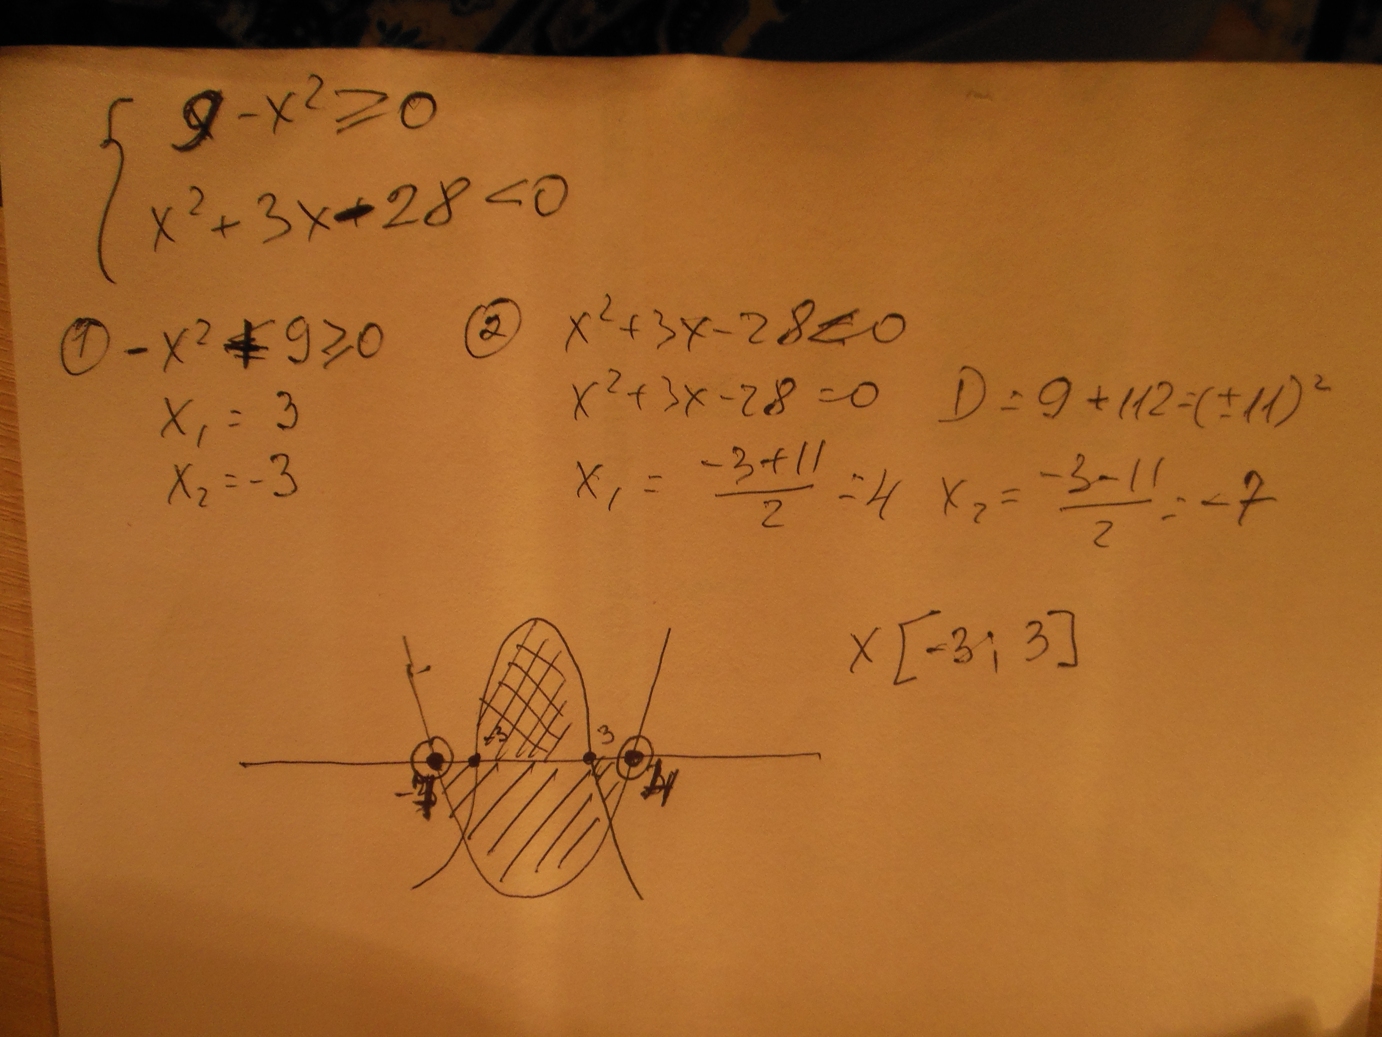 { 9 - x² ≥ 0
x² + 3x - 28 < 0
① -x² + 9 ≥ 0
x₁ = 3
x₂ = -3
② x² + 3x - 28 < 0
x² + 3x - 28 = 0 D = 9 + 112 = (±11)²
x₁ = (-3+11)/2 = 4 x₂ = (-3-11)/2 = -7
x [-3; 3]
-3 3
-7 4